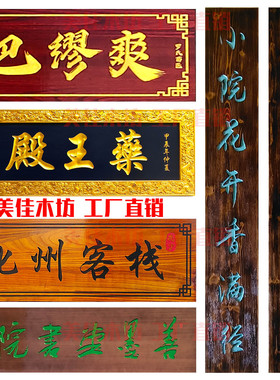 巴缪爽
藥王殿
甲辰年仲夏
美佳木坊 工厂直销
州客栈
善墨堂書院
小院花开香满径